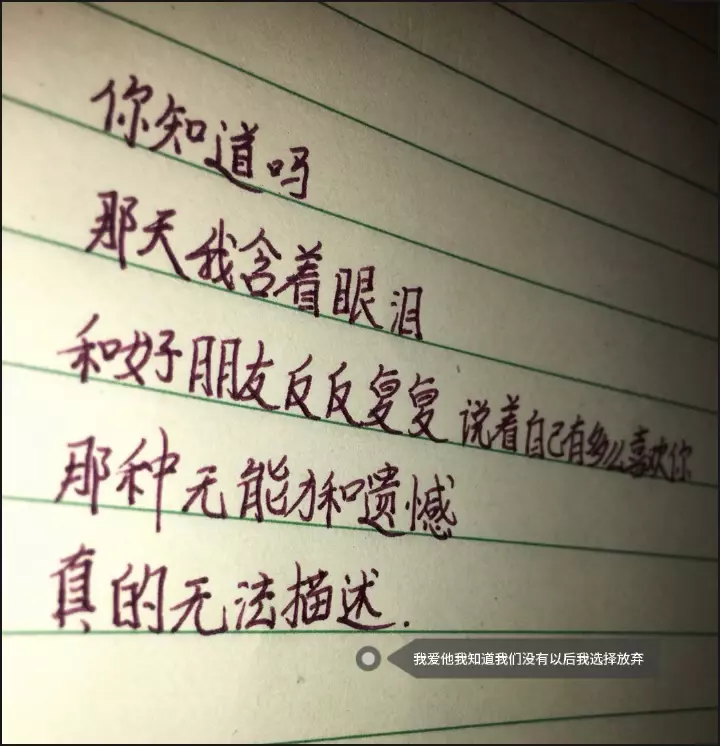 你知道吗
那天我含着眼泪
和好朋友反反复复说着自己有多么喜欢你
那种无能力和遗憾
真的无法描述.
我爱他我知道我们没有以后我选择放弃